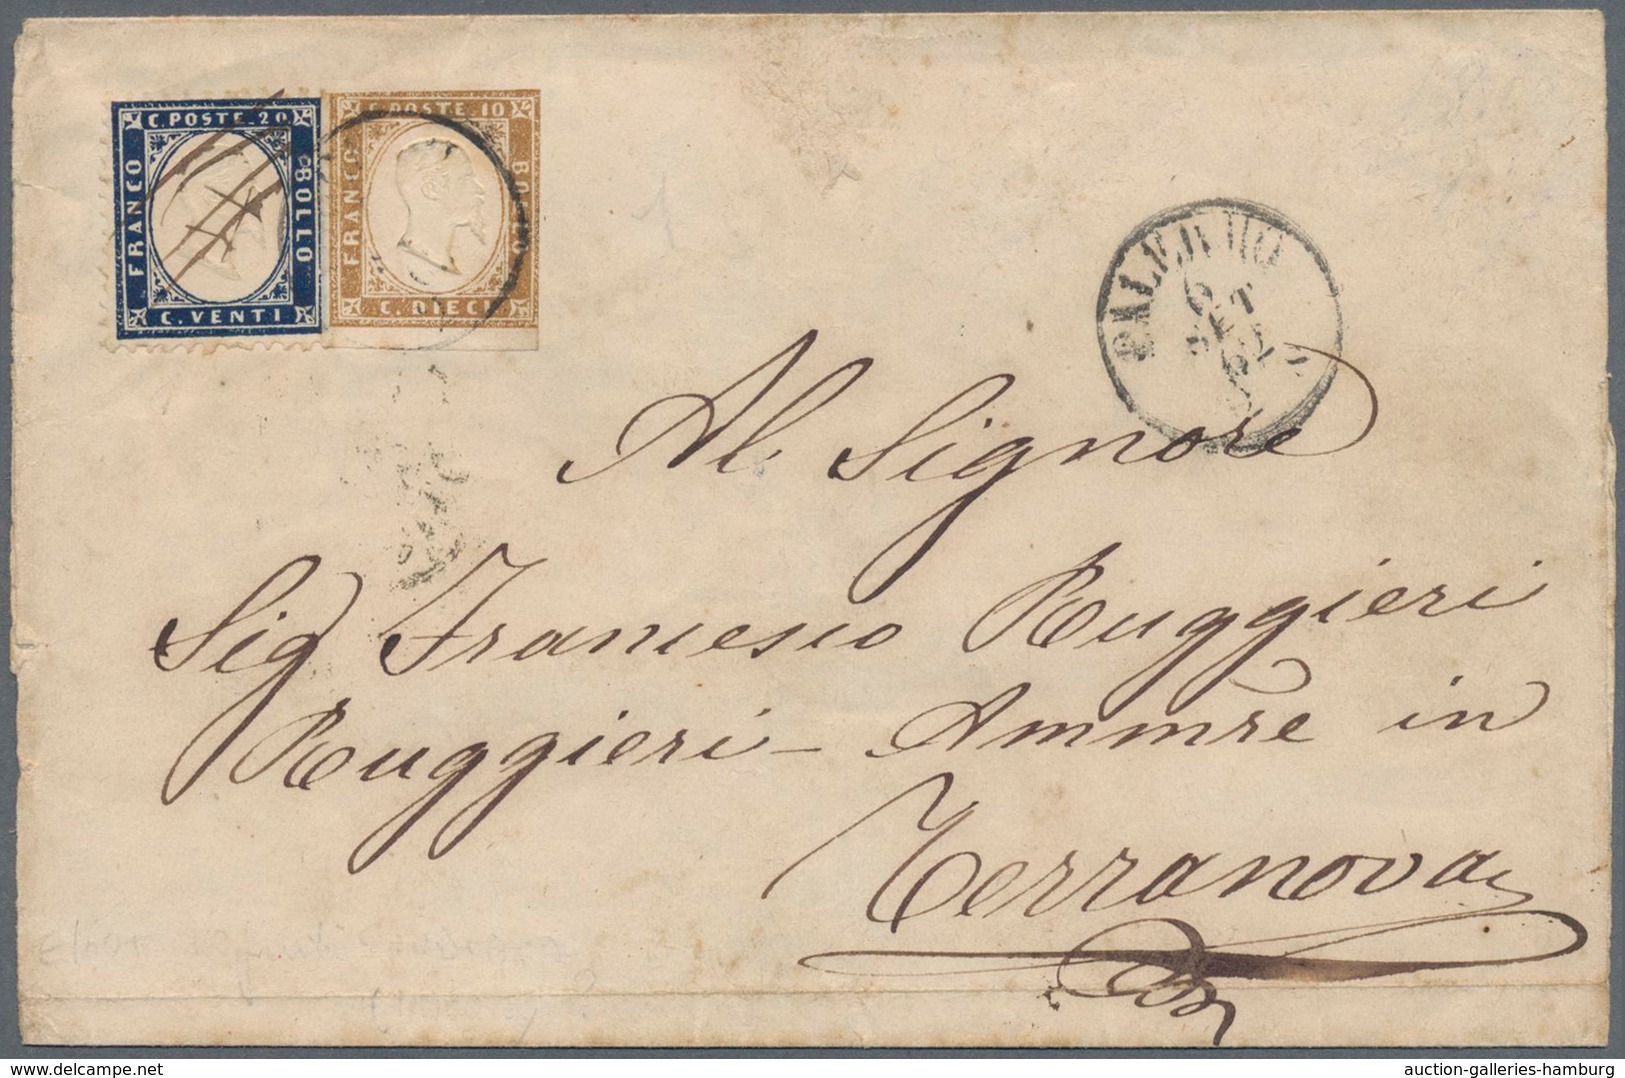 C. POSTE. 20
FRANCO
BOLLO
C. VENTI
C. POSTE. 10
FRANCO
BOLLO
C. DIECI
PALERMO
6
SET
62
Al Signore
Sig Francesco Ruggieri
Ruggieri - Ammre in
Terranova
auction-galleries-hamburg